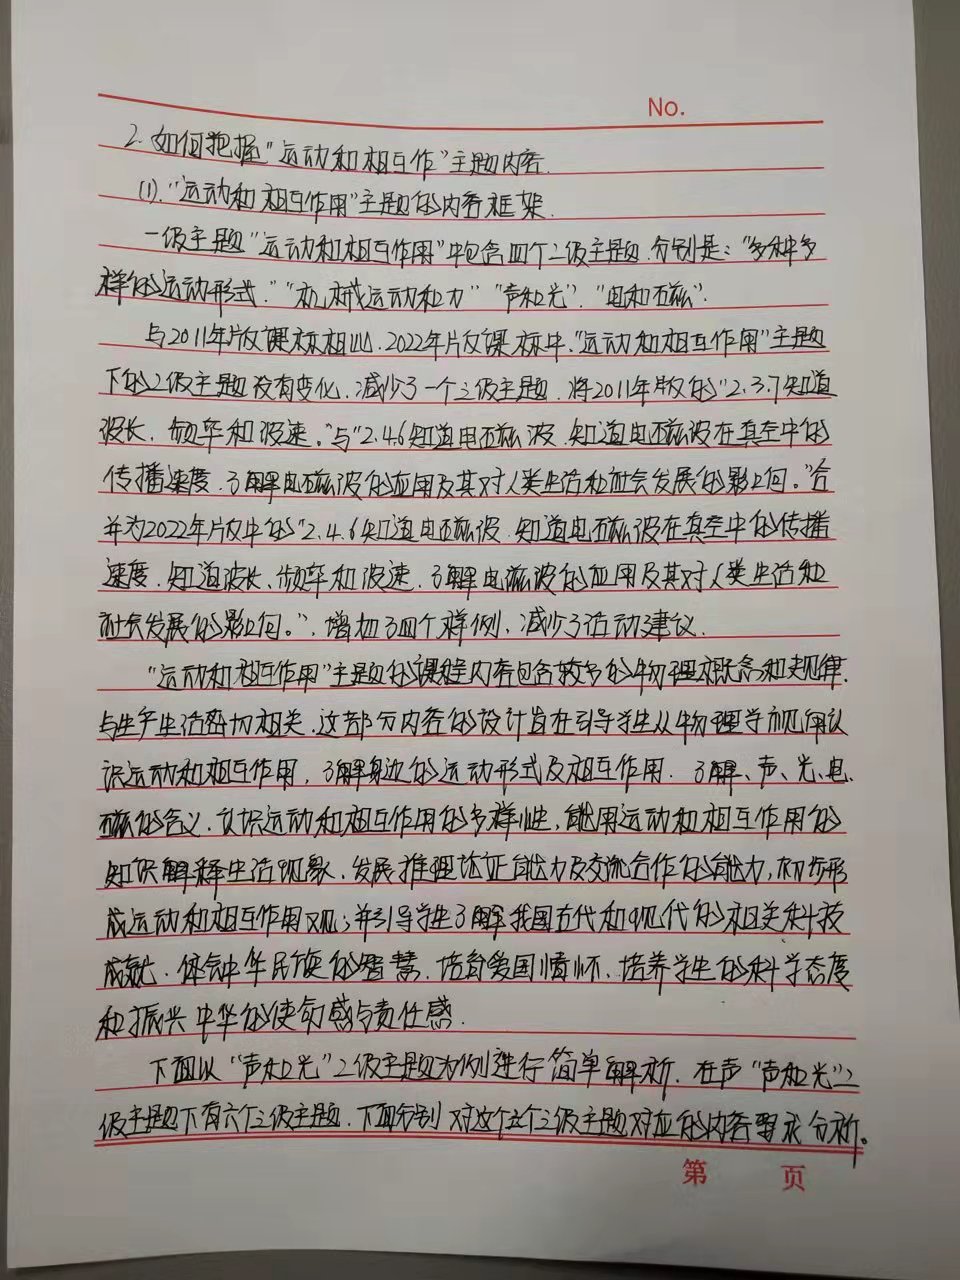 No.
2.如何把握“运动和相互作”主题内容.
(1).“运动和相互作用”主题的内容框架.
一级主题“运动和相互作用”中包含四个二级主题.分别是:“多种多
样的运动形式.”“机械运动和力”“声和光”.“电和磁”.
与2011年版课标相比,2022年版课标中.“运动和相互作用”主题
下的2级主题没有变化.减少了一个三级主题.将2011年版的“2.3.7知道
波长、频率和波速。”与“2.4.6知道电磁波.知道电磁波在真空中的
传播速度.了解电磁波的应用及其对人类生活和社会发展的影响。”合
并为2022年版中的“2.4.6知道电磁波.知道电磁波在真空中的传播
速度.知道波长、频率和波速.了解电磁波的应用及其对人类生活和
社会发展的影响。”.增加了四个样例、减少了活动建议.
“运动和相互作用”主题的课程内容包含较多的物理概念和规律.
与生产生活密切相关.这部分内容的设计旨在引导学生从物理学视角认
识运动和相互作用,了解身边的运动形式及相互作用.了解、声、光、电、
磁的含义.认识运动和相互作用的多样性,能用运动和相互作用的
知识解释生活现象、发展推理论证能力及交流合作的能力,初步形
成运动和相互作用观;并引导学生了解我国古代和现代的相关科技
成就.体会中华民族的智慧.培育爱国情怀、培养学生的科学态度
和振兴中华的使命感与责任感.
下面以“声和光”2级主题为例进行简单解析.在声“声和光”2
级主题下有六个三级主题.下面分别对这个五个三级主题对应的内容要求分析。
第 页